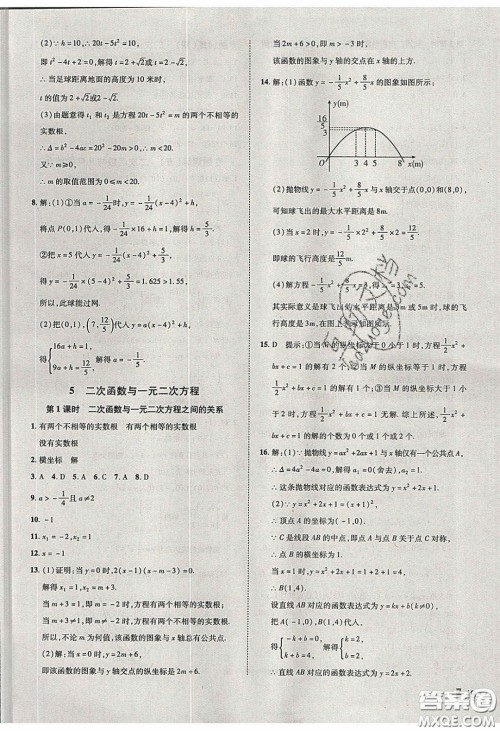 (2)∵h=10,∴20t-5t²=10,
即t²-4t+2=0,解得t=2+√2或t=2-√2.
∴当足球距离地面的高度为10米时,
t的值为2+√2或2-√2.
(3)由题意得t₁和t₂是方程20t-5t²=m的两个不相等的
实数根,
∴Δ=b²-4ac=20²-20m>0,∴m<20.
又∵m≥0,
∴m的取值范围为0≤m<20.
8.解:(1)①当a=-1/24时,y=-1/24(x-4)²+h,
将点P(0,1)代入,得-1/24×16+h=1,解得h=5/3.
②把x=5代入y=-1/24(x-4)²+5/3,
得y=-1/24×(5-4)²+5/3=1.625>1.55,
所以,此球能过网.
(2)把(0,1),(7,12/5)代入y=a(x-4)²+h,
得{16a+h=1,
9a+h=12/5,
5 二次函数与一元二次方程
第1课时 二次函数与一元二次方程之间的关系
1.有两个不相等的实数根 有两个相等的实数根
没有实数根
2.横坐标 解
3.A 4.D 5.A 6.C 7.A 8.D
9.a>-1/4且a≠2
10.-1
11.x₁=-2,x₂=1
12.x=-1
13.(1)证明:当y=0时,2(x-1)(x-m-3)=0.
解得x₁=1,x₂=m+3.
当m+3=1,即m=-2时,方程有两个相等的实数根;
当m+3≠1,即m≠-2时,方程有两个不相等的实数根.
所以,不论m为何值,该函数的图象与x轴总有公共点.
(2)解:当x=0时,y=2m+6,
即该函数的图象与y轴交点的纵坐标是2m+6.
当2m+6>0,即m>-3时,
该函数的图象与y轴的交点在x轴的上方.
14.解:(1)函数y=-1/5x²+8/5x的图象如图所示:
y(m)
16/5
3
O 3 4 5 8 x(m)
(2)抛物线y=-1/5x²+8/5x与x轴交于点(0,0)和(8,0),
可知球飞出的最大水平距离是8m.
(3)当x=2时,y=-1/5×2²+8/5×2=12/5,
即球的飞行高度是12/5m.
(4)解方程-1/5x²+8/5x=3,得x₁=3,x₂=5.
其实际意义是球飞出的水平距离是3m或5m时,球的飞
行高度是3m.图上表示如图所示.
15.D 提示:①当M的纵坐标大于0小于1时,方程x²
+bx+c=1的解有2个;②当M的纵坐标等于1时,方程x²+
bx+c=1的解有1个;③当M的纵坐标大于1时,方程x²+
bx+c=1的解有0个.
16.解:(1)∵抛物线y=ax²+2ax+1与x轴仅有一个公共点A,
∴Δ=4a²-4a=0,解得a₁=0(舍去),a₂=1,
∴这条抛物线对应的函数表达式为y=x²+2x+1.
(2)∵y=x²+2x+1=(x+1)²,
∴顶点A的坐标为(-1,0).
∵C是线段AB的中点,点C在y轴上,
∴点B的横坐标为1.
当x=1时,y=x²+2x+1=1+2+1=4,
∴B(1,4).
设直线AB对应的函数表达式为y=kx+b(k≠0),
把A(-1,0),B(1,4)代入,
得{-k+b=0,
k+b=4,
解得{k=2,
b=2.
∴直线AB对应的函数表达式为y=2x+2.
答案圈
MXQE.COM